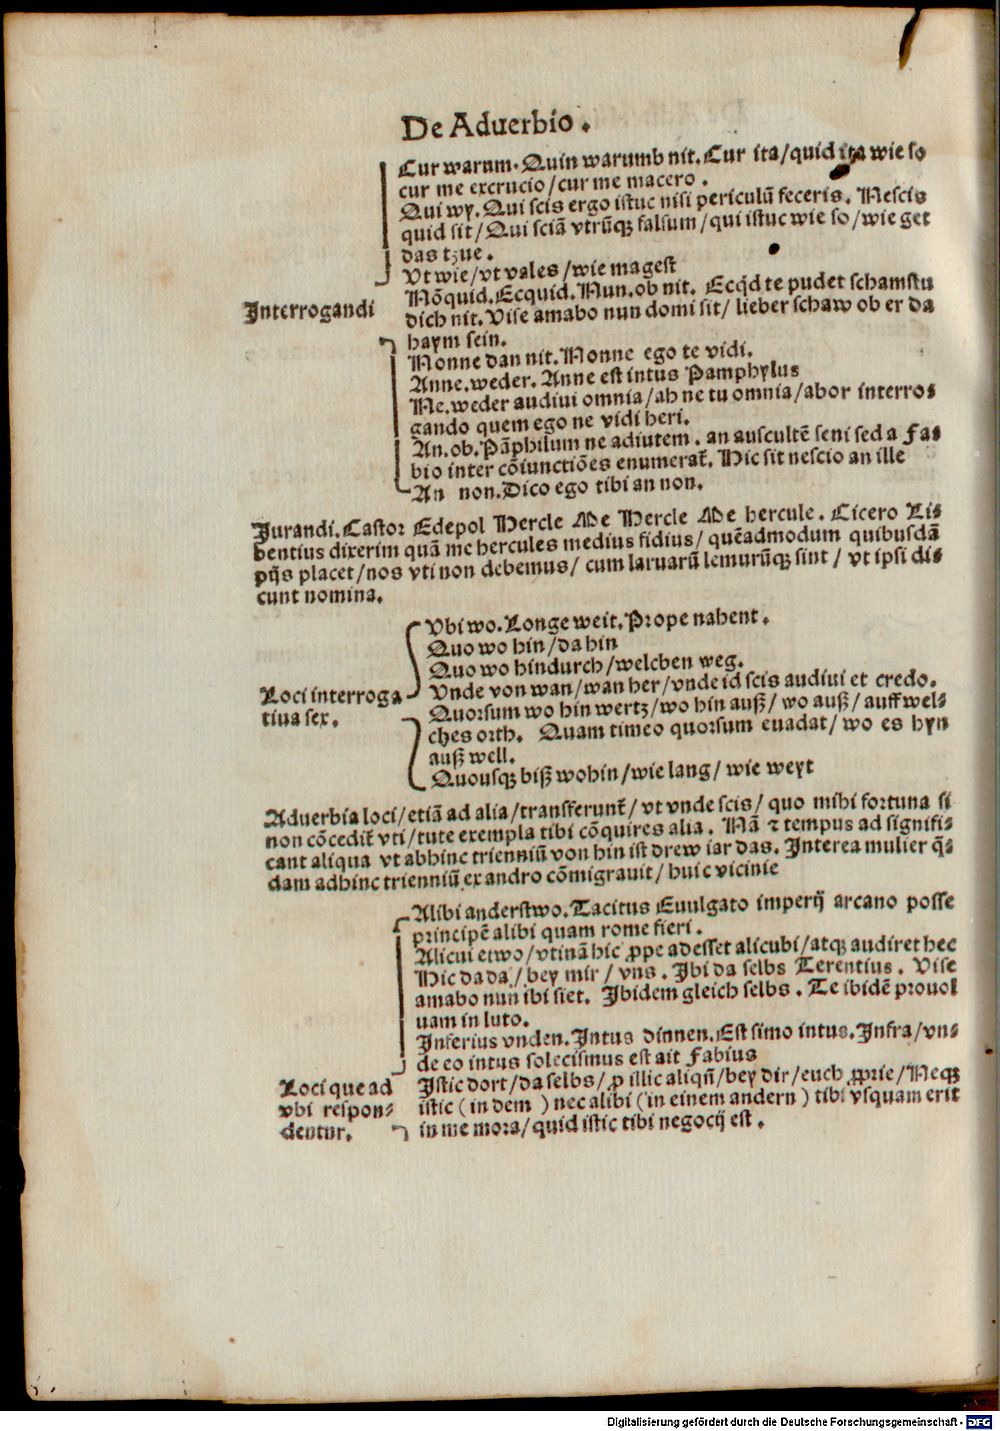 De Aduerbio.
Cur warum. Quin warumb nit. Cur ita/quid ita wie so
cur me excrucio/cur me macero.
Qui wy. Qui scis ergo istuc nisi periculū feceris. Nescis
quid sit/Qui sciā vtrūqꝫ falsum/qui istuc wie so/wie get
das tzue.
Vt wie/vt vales/wie magest
Interrogandi
Nōquid. Ecquid. Nun. ob nit. Ecq̄d te pudet schamstu
dich nit. Vise amabo nun domi sit/ lieber schaw ob er da
haym sein.
Nonne dan nit. Nonne ego te vidi.
Anne. weder. Anne est intus Pamphylus
Ne. weder audiui omnia/ah ne tu omnia/abor interro⸗
gando quem ego ne vidi heri.
An. ob. Pāphilum ne adiutem. an auscultē seni sed a Fa⸗
bio inter cōiunctiōes enumerat̄. Hic sit nescio an ille
An non. Dico ego tibi an non.
Jurandi. Castor Edepol Hercle Me Hercle Me hercule. Cicero Li⸗
bentius dixerim quā me hercules medius fidius/ quēadmodum quibusdā
pijs placet/nos vti non debemus/ cum laruarū lemurūqꝫ sint/ vt ipsi di⸗
cunt nomina.
Vbi wo. Longe weit. Prope nahent.
Quo wo hin/da hin
Quo wo hindurch/welchen weg.
Loci interroga
tiua sex.
Vnde von wan/wan her/vnde id scis audiui et credo.
Quorsum wo hin wertz/wo hin auß/ wo auß/ auff wel⸗
ches orth. Quam timeo quorsum euadat/ wo es hyn
auß well.
Quousqꝫ biß wohin/wie lang/ wie weyt
Aduerbia loci/etiā ad alia/transferunt̄/ vt vnde scis/ quo mihi fortuna si
non cōcedit̄ vti/tute exempla tibi cōquires alia. Nā ⁊ tempus ad signifi⸗
cant aliqua vt abhinc trienniū von hin ist drew iar das. Interea mulier q̄⸗
dam adhinc trienniū ex andro cōmigrauit/ huic vicinie
Alibi anderstwo. Tacitus Euulgato imperij arcano posse
principē alibi quam rome fieri.
Alicui etwo/vtinā hic ꝓpe adesset alicubi/atqꝫ audiret hec
Hic da da/bey mir/ vns. Ibi da selbs Terentius. Vise
amabo nun ibi siet. Ibidem gleich selbs. Te ibidē prouol
uam in luto.
Inferius vnden. Intus dinnen. Est simo intus. Infra/vn⸗
de eo intus solecismus est ait Fabius
Loci que ad
vbi respon⸗
dentur.
Istic dort/da selbs/ ꝓ illic aliqn̄/bey dir/euch ꝓprie/Neqꝫ
istic (in dem) nec alibi (in einem andern) tibi vsquam erit
in me mora/quid istic tibi negocij est.
Digitalisierung gefördert durch die Deutsche Forschungsgemeinschaft - DFG